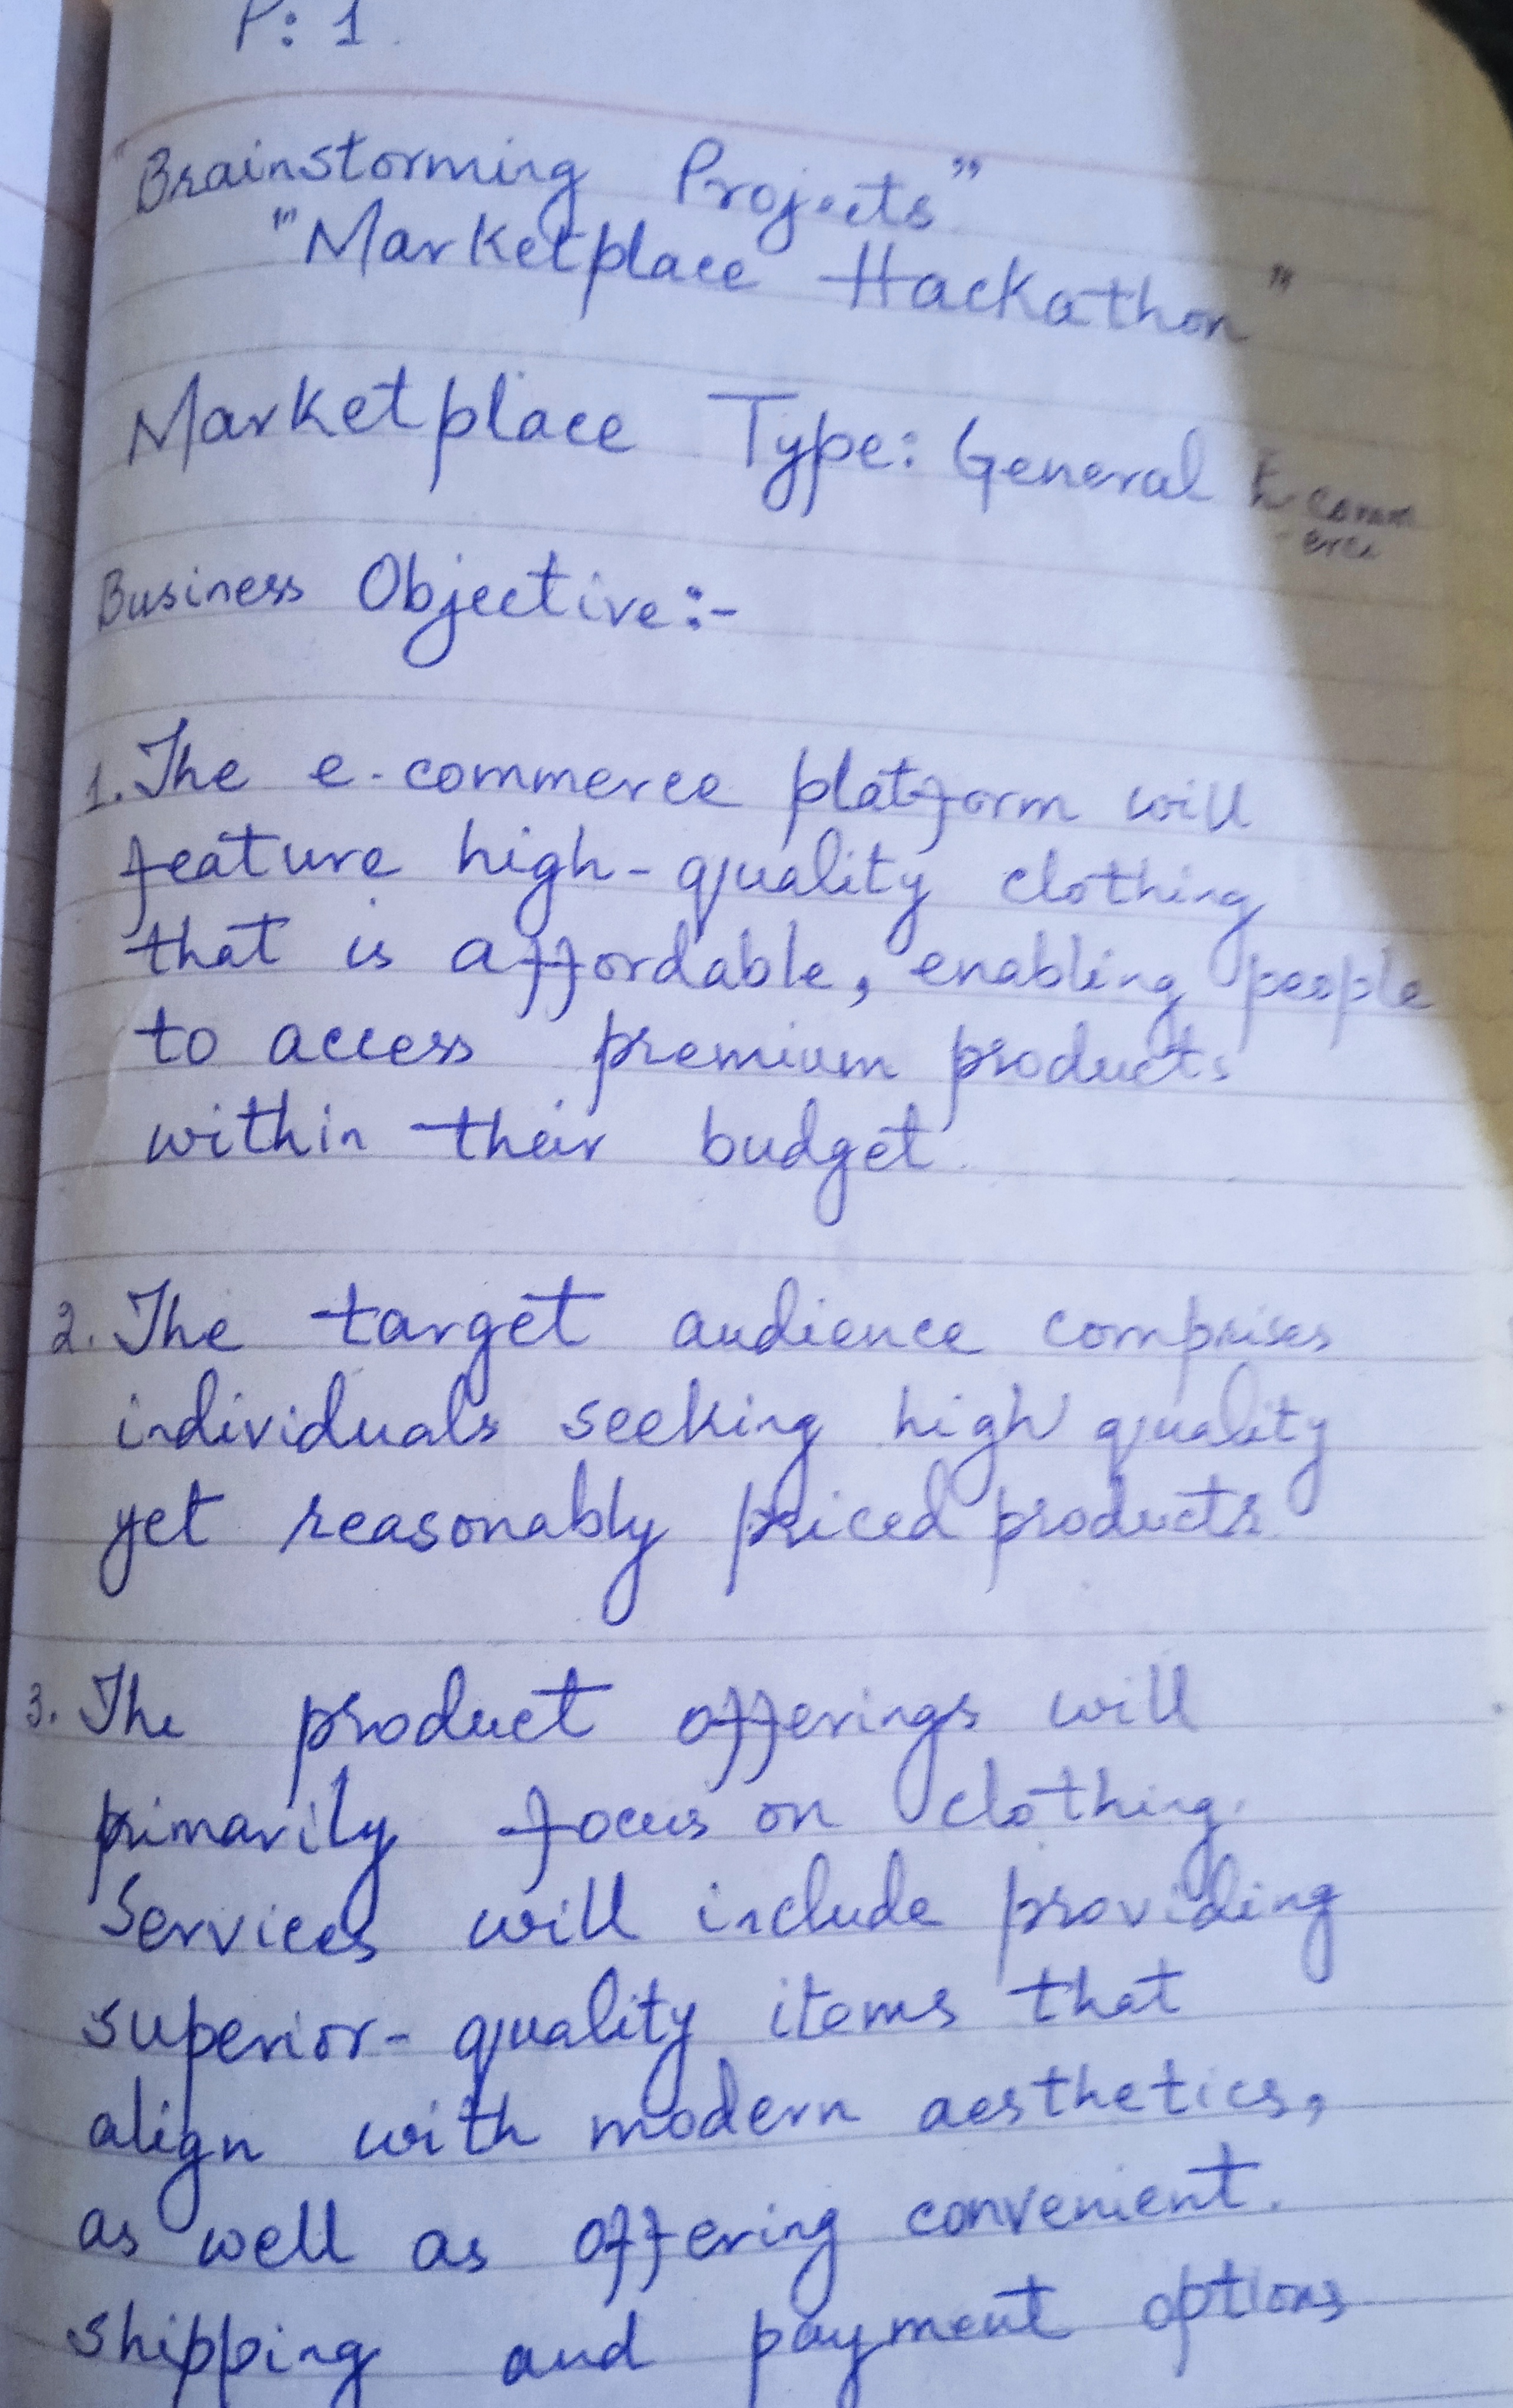 P: 1
"Brainstorming Projects"
"Marketplace Hackathon"
Marketplace Type: General E-comm
-erce
Business Objective:-
1. The e-commerce platform will
feature high-quality clothing
that is affordable, enabling people
to access premium products
within their budget.
2. The target audience comprises
individuals seeking high quality
yet reasonably priced products
3. The product offerings will
primarily focus on clothing.
Services will include providing
superior-quality items that
align with modern aesthetics,
as well as offering convenient.
shipping and payment options